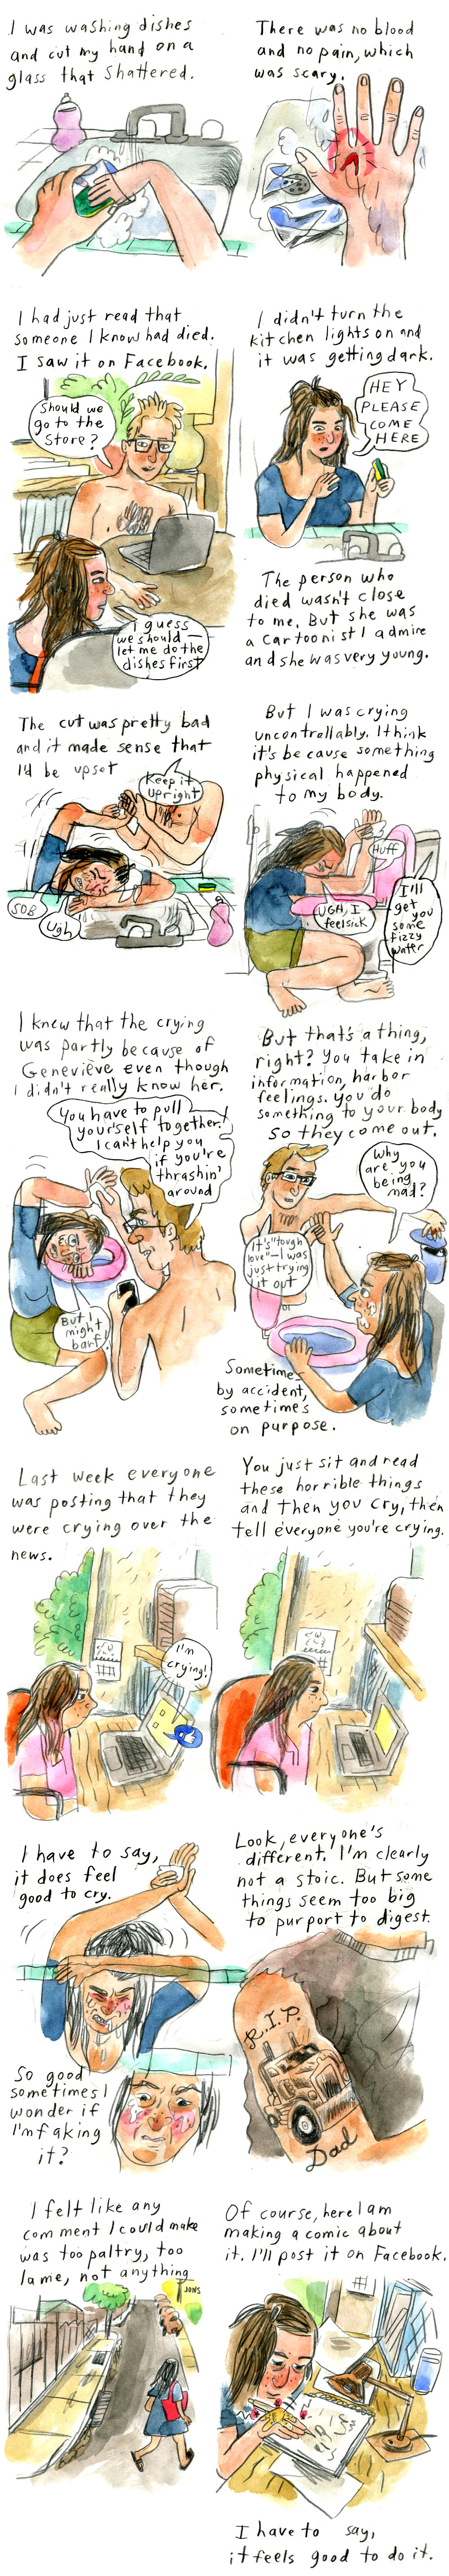 I was washing dishes
and cut my hand on a
glass that shattered.
There was no blood
and no pain, which
was scary.
I had just read that
someone I know had died.
I saw it on Facebook.
Should we
go to the
Store?
I guess
we should—
let me do the
dishes first
I didn't turn the
kitchen lights on and
it was getting dark.
HEY
PLEASE
COME
HERE
The person who
died wasn't close
to me. But she was
a cartoonist I admire
and she was very young.
The cut was pretty bad
and it made sense that
I'd be upset
Keep it
upright
SOB
Ugh
But I was crying
uncontrollably. I think
it's because something
physical happened
to my body.
Huff
UGH, I
feel sick
I'll
get
you
some
fizzy
water
I knew that the crying
was partly because of
Geneviève even though
I didn't really know her.
You have to pull
yourself together!
I can't help you
if you're
thrashin'
around
But I
might
barf!
But that's a thing,
right? You take in
information, harbor
feelings. You do
something to your body
so they come out.
Why
are you
being
mad?
It's "tough
love"—I was
just trying
it out
Sometimes
by accident,
sometimes
on purpose.
Last week everyone
was posting that they
were crying over the
news.
I'm
crying!
You just sit and read
these horrible things
and then you cry, then
tell everyone you're crying.
I have to say,
it does feel
good to cry.
So good
sometimes I
wonder if
I'm faking
it?
Look, everyone's
different. I'm clearly
not a stoic. But some
things seem too big
to purport to digest.
R.I.P.
Dad
I felt like any
comment I could make
was too paltry, too
lame, not anything
JONS
Of course, here I am
making a comic about
it. I'll post it on Facebook.
I have to say,
it feels good to do it.